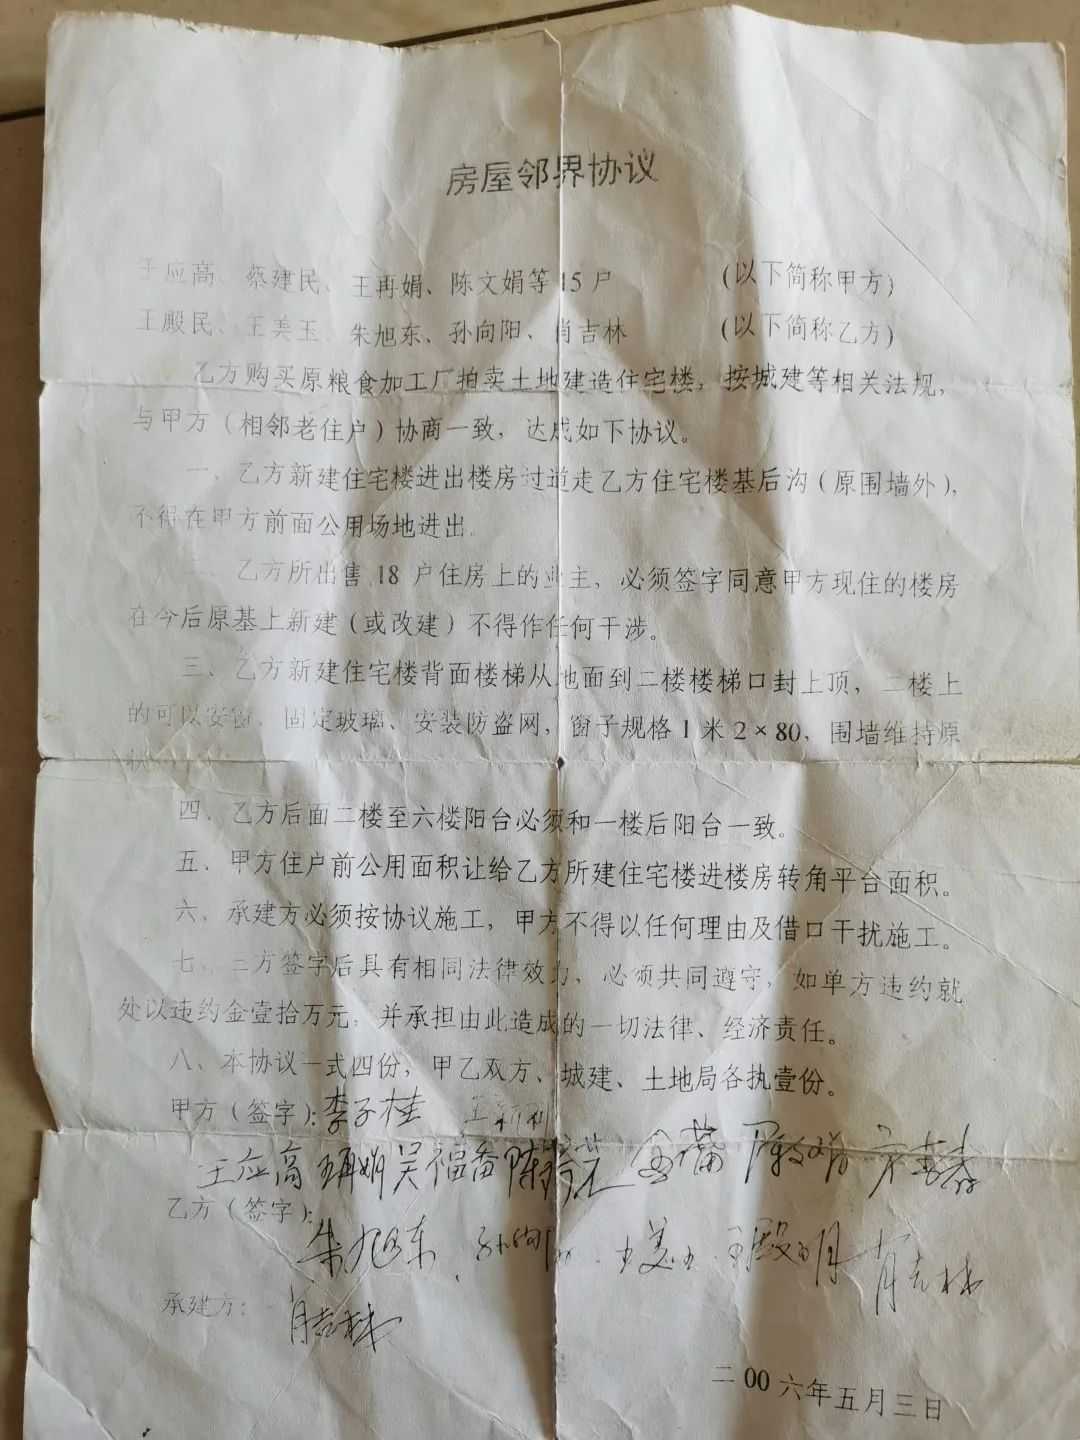 房屋邻界协议
王应高、蔡建民、王再娟、陈文娟等15户 (以下简称甲方)
王殿民、王美玉、朱旭东、孙向阳、肖吉林 (以下简称乙方)
乙方购买原粮食加工厂拍卖土地建造住宅楼，按城建等相关法规，
与甲方（相邻老住户）协商一致，达成如下协议。
一、乙方新建住宅楼进出楼房过道走乙方住宅楼基后沟（原围墙外），
不得在甲方前面公用场地进出.
乙方所出售18户住房上的业主，必须签字同意甲方现住的楼房
在今后原基上新建（或改建）不得作任何干涉。
三、乙方新建住宅楼背面楼梯从地面到二楼楼梯口封上顶，二楼上
的可以安窗、固定玻璃、安装防盗网，窗子规格1米2×80，围墙维持原
状
四、乙方后面二楼至六楼阳台必须和一楼后阳台一致。
五、甲方住户前公用面积让给乙方所建住宅楼进楼房转角平台面积。
六、承建方必须按协议施工，甲方不得以任何理由及借口干扰施工。
七、三方签字后具有相同法律效力，必须共同遵守，如单方违约就
处以违约金壹拾万元，并承担由此造成的一切法律、经济责任。
八、本协议一式四份，甲乙双方、城建、土地局各执壹份。
甲方（签字）：李子桂
王应高 王再娟 吴福备
乙方（签字）：
朱旭东 孙向阳 王美玉 王殿明 肖吉林
承建方： 肖吉林
二00六年五月三日